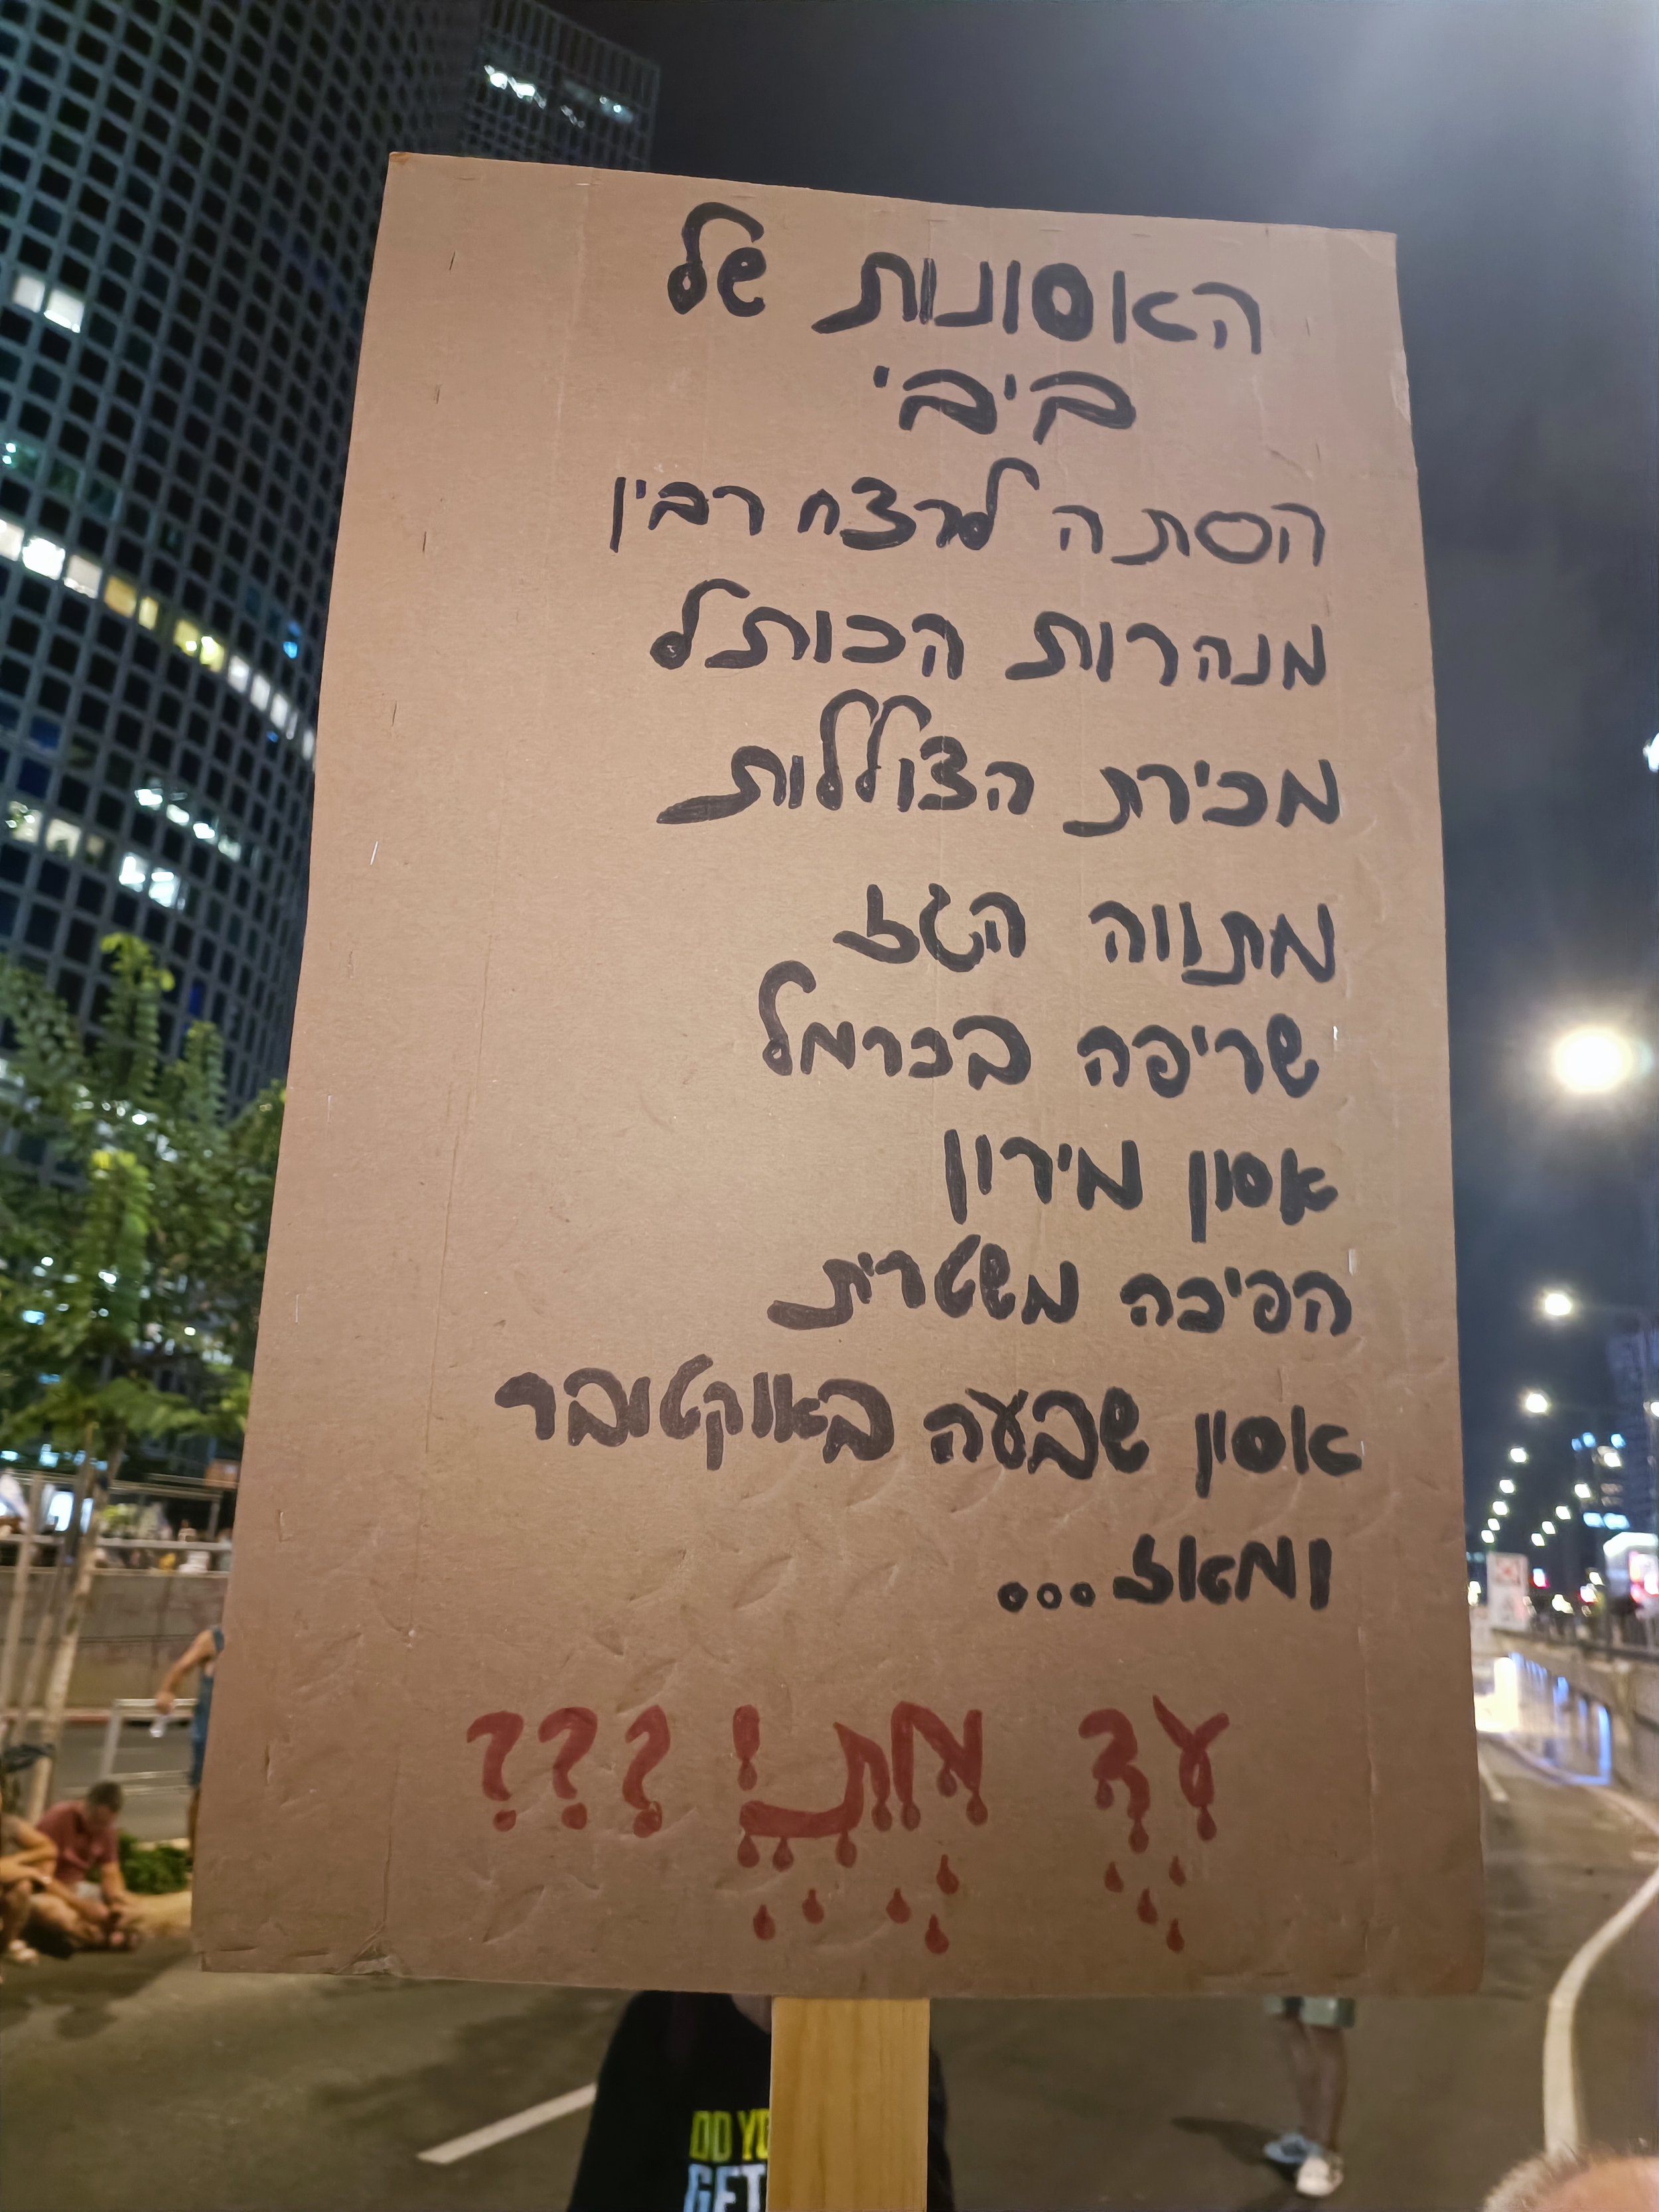 האסונות של
ביבי
הסתה לרצח רבין
מנהרות הכותל
מכירת הצוללות
מתווה הגז
שריפה בכרמל
אסון מירון
הפיכה משטרית
אסון שבעה באוקטובר
ומאז...
עד מתי ???
DO YO
GET